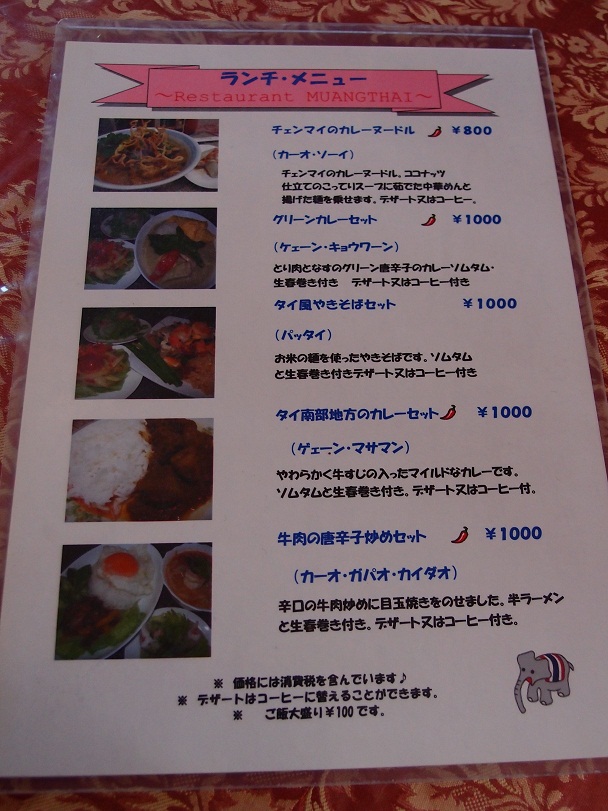 ランチ・メニュー
～Restaurant MUANGTHAI～
チェンマイのカレーヌードル ￥800
（カーオ・ソーイ）
チェンマイのカレーヌードル。ココナッツ
仕立てのこってりスープに茹でた中華めんと
揚げた麺を乗せます。デザート又はコーヒー。
グリーンカレーセット ￥1000
（ゲェーン・キョウワーン）
とり肉となすのグリーン唐辛子のカレーソムタム・
生春巻き付き デザート又はコーヒー付き
タイ風やきそばセット ￥1000
（パッタイ）
お米の麺を使ったやきそばです。ソムタム
と生春巻き付きデザート又はコーヒー付き
タイ南部地方のカレーセット ￥1000
（ゲェーン・マサマン）
やわらかく牛すじの入ったマイルドなカレーです。
ソムタムと生春巻き付き。デザート又はコーヒー付。
牛肉の唐辛子炒めセット ￥1000
（カーオ・ガパオ・カイダオ）
辛口の牛肉炒めに目玉焼きをのせました。半ラーメン
と生春巻き付き。デザート又はコーヒー付き。
※ 価格には消費税を含んでいます♪
※ デザートはコーヒーに替えることができます。
※ ご飯大盛り￥100です。